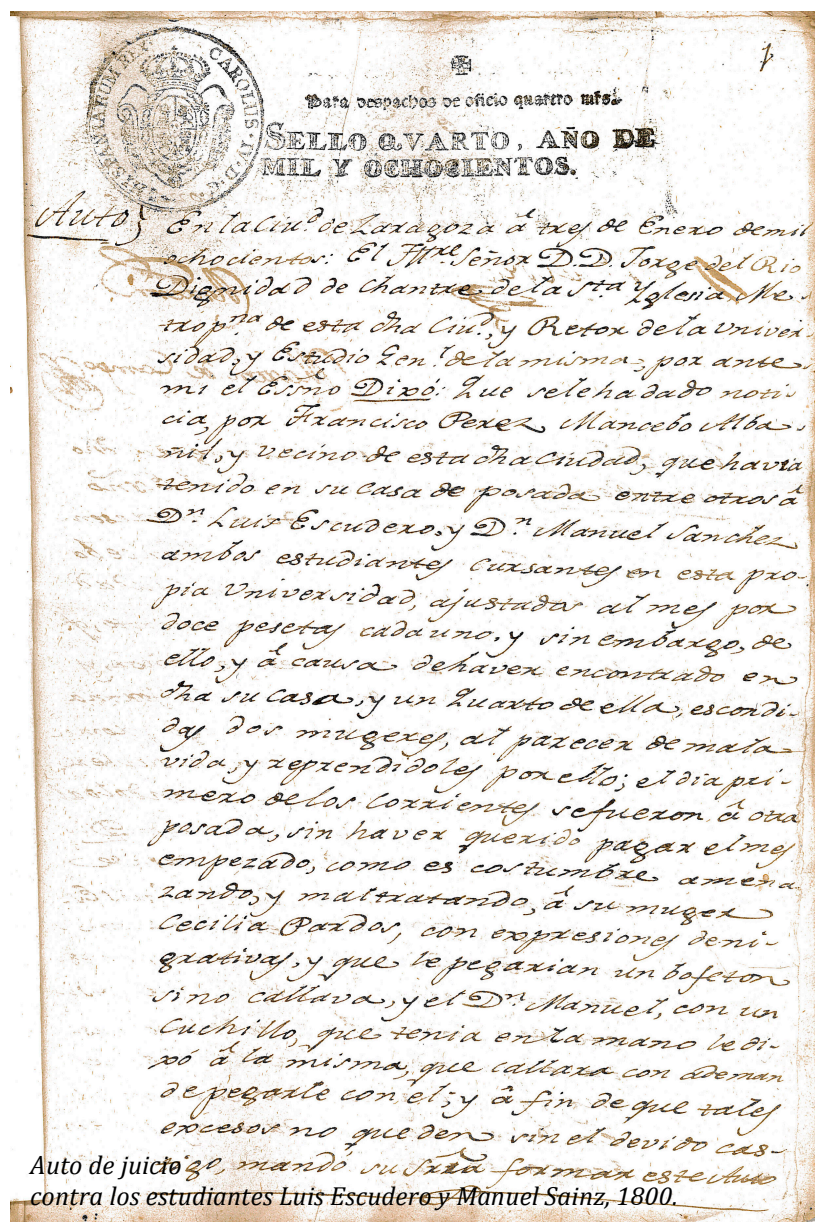 1
CAROLUS·IV·D·G· HISPANIARUM REX
Para despachos de oficio quatro mrs.
SELLO QVARTO, AÑO DE
MIL Y OCHOCIENTOS.
Auto
En la Ciu.d de Zaragoza â tres de Enero de mil
ochocientos: El Illre. Señor D.D. Jorge del Rio
Dignidad de Chantre de la Sta. Yglesia Me-
tropna. de esta dha Ciud., y Retor de la Univer-
sidad, y Estudio Gen.l de la misma, por ante
mi el Essno Dixó: Que se le ha dado noti-
cia, por Francisco Perez Mancebo Alba-
ñil, y vecino de esta dha Ciudad, que havia
tenido en su casa de posada entre otros â
D.n Luis Escudero, y D.n Manuel Sanchez
ambos estudiantes cursantes en esta pro-
pia Universidad, ajustados al mes por
doce pesetas cada uno, y sin embargo, de
ello, y â causa de haver encontrado en
dha su casa, y un Quarto de ella, escondi-
das dos mugeres, al parecer de mala
vida, y reprendidoles por ello; el dia pri-
mero de los corrientes se fueron â otra
posada, sin haver querido pagar el mes
empezado, como es costumbre amena-
zando, y maltratando, â su muger
Cecilia Pardos, con expresiones deni-
grativas, y que le pegarian un bofeton
sino callava, y el D.n Manuel, con un
Cuchillo, que tenia en la mano le di-
xó â la misma, que callara con ademan
de pegarle con él; y â fin de que tales
excesos no queden sin el devido cas-
tigo, mandó su Sria formar este Auto
Auto de juicio
contra los estudiantes Luis Escudero y Manuel Sainz, 1800.